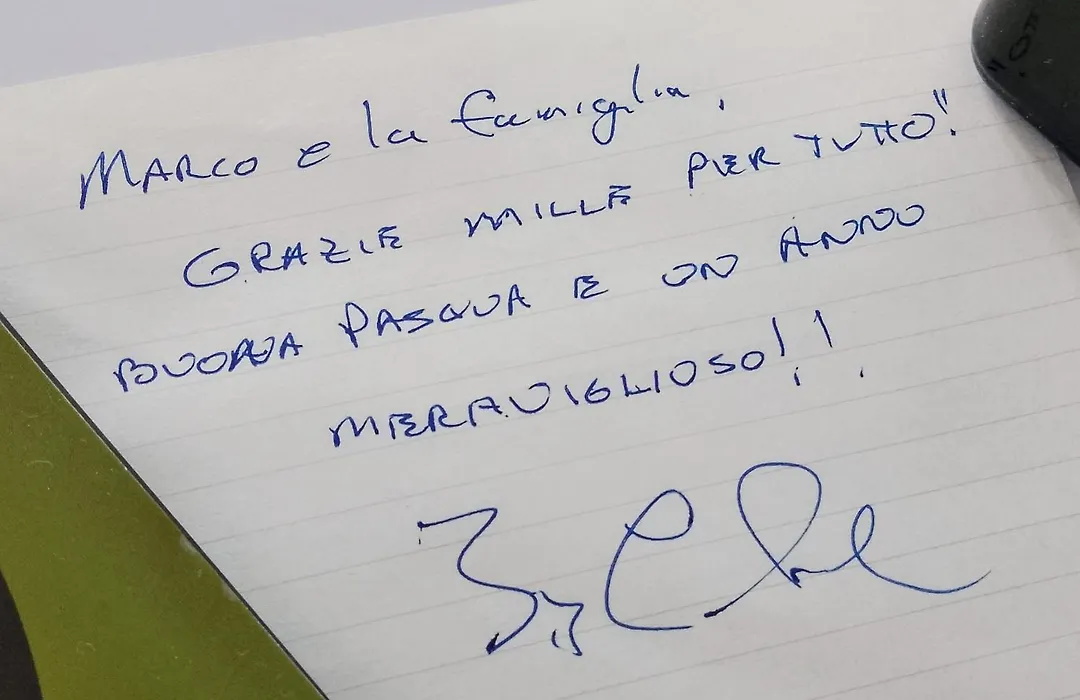 MARCO e la famiglia,
GRAZIE MILLE PER TUTTO!!
BUONA PASQUA E UN ANNO
MERAVIGLIOSO!!